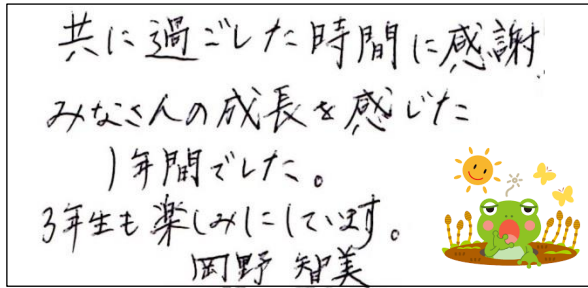 共に過ごした時間に感謝
みなさんの成長を感じた
1年間でした。
3年生も楽しみにしています。
岡野 智美